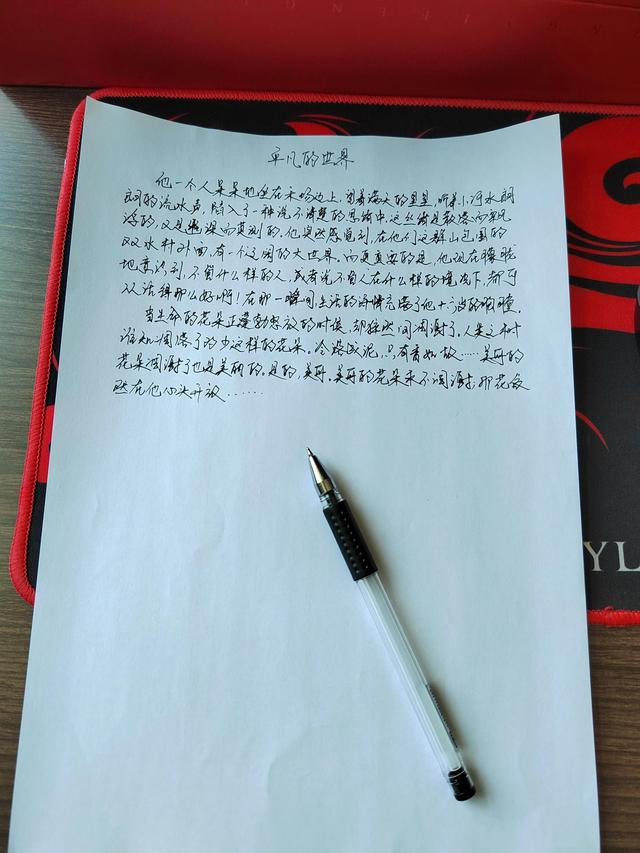 平凡的世界
他一个人呆呆地坐在禾场边上,望着满天的星星,听着小河水朗
朗的流水声,陷入了一种说不清楚的思绪中。这思绪是散漫而飘
浮的,又是幽深而莫测的。他突然感觉到,在他们这群山包围的
双水村外面,有一个辽阔的大世界。而更重要的是,他现在朦胧
地意识到,不管什么样的人,或者说不管人在什么样的境况下,都可
以活得那么好啊!在那一瞬间,生活的诗情充满了他十六岁的胸膛。
当生命的花朵正蓬勃怒放的时候,却猝然间凋谢了。人类之树
谁知凋落了多少这样的花朵。化没成泥,只有香如故……美丽的
花朵凋谢了也是美丽的。是的,美丽。美丽的花朵永不凋谢,那花依
然在他心头开放……
YL